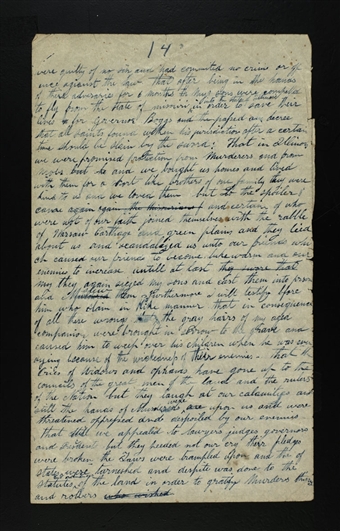 14
were guilty of no sin and had committed no crime or off
ence against the law that after being in the hands
of there adversaries for 6 months the my sons were compeled
to fly from the State of missouri in order to save their
lives for Governor Boggs and then passed an decree
that all saints found within his jurisdiction after a certain
time should be slain by the sword; That in Illinois
we were promised protection from Murderers and from
mobs but
we bought us homes and lived
with them for a short time brothers of one family they were
kind to us and we loved them but at the spoilers
came again
who
were not of our faith joined themselves with the rabble
of Warsaw Carthage and green plains and they lied
about us and scandalized us unto our friends whi
ch caused our friends to become lukewarm and our
enimies to increase untill at last they swore that
my they again siezed my sons and cast them into prison
and Murdered them furthermore I will testify for
him who slain in like manner that in consequence
of all there wrongs the gray hairs of my aged
companion were brought in sorrow to the grave and
caused him to weep over his children when he was
dying because of the wickedness of their enemies that the
Cries of Widows and orphans have gone up to the
councils of the great men of the land and the rulers
of the Nation but they laugh at our calamities and
still the hands of Murderers are upon us with were
threatened oppressed and by our enemies
that still we appealed to Lawyers judges governors
and President but they heeded not our cry their pledges
were broken the Laws were trampled upon and the
of
State were tarnished and despite was done to the
statutes of the land in order to gratify Murderers thieves
and robbers who wished